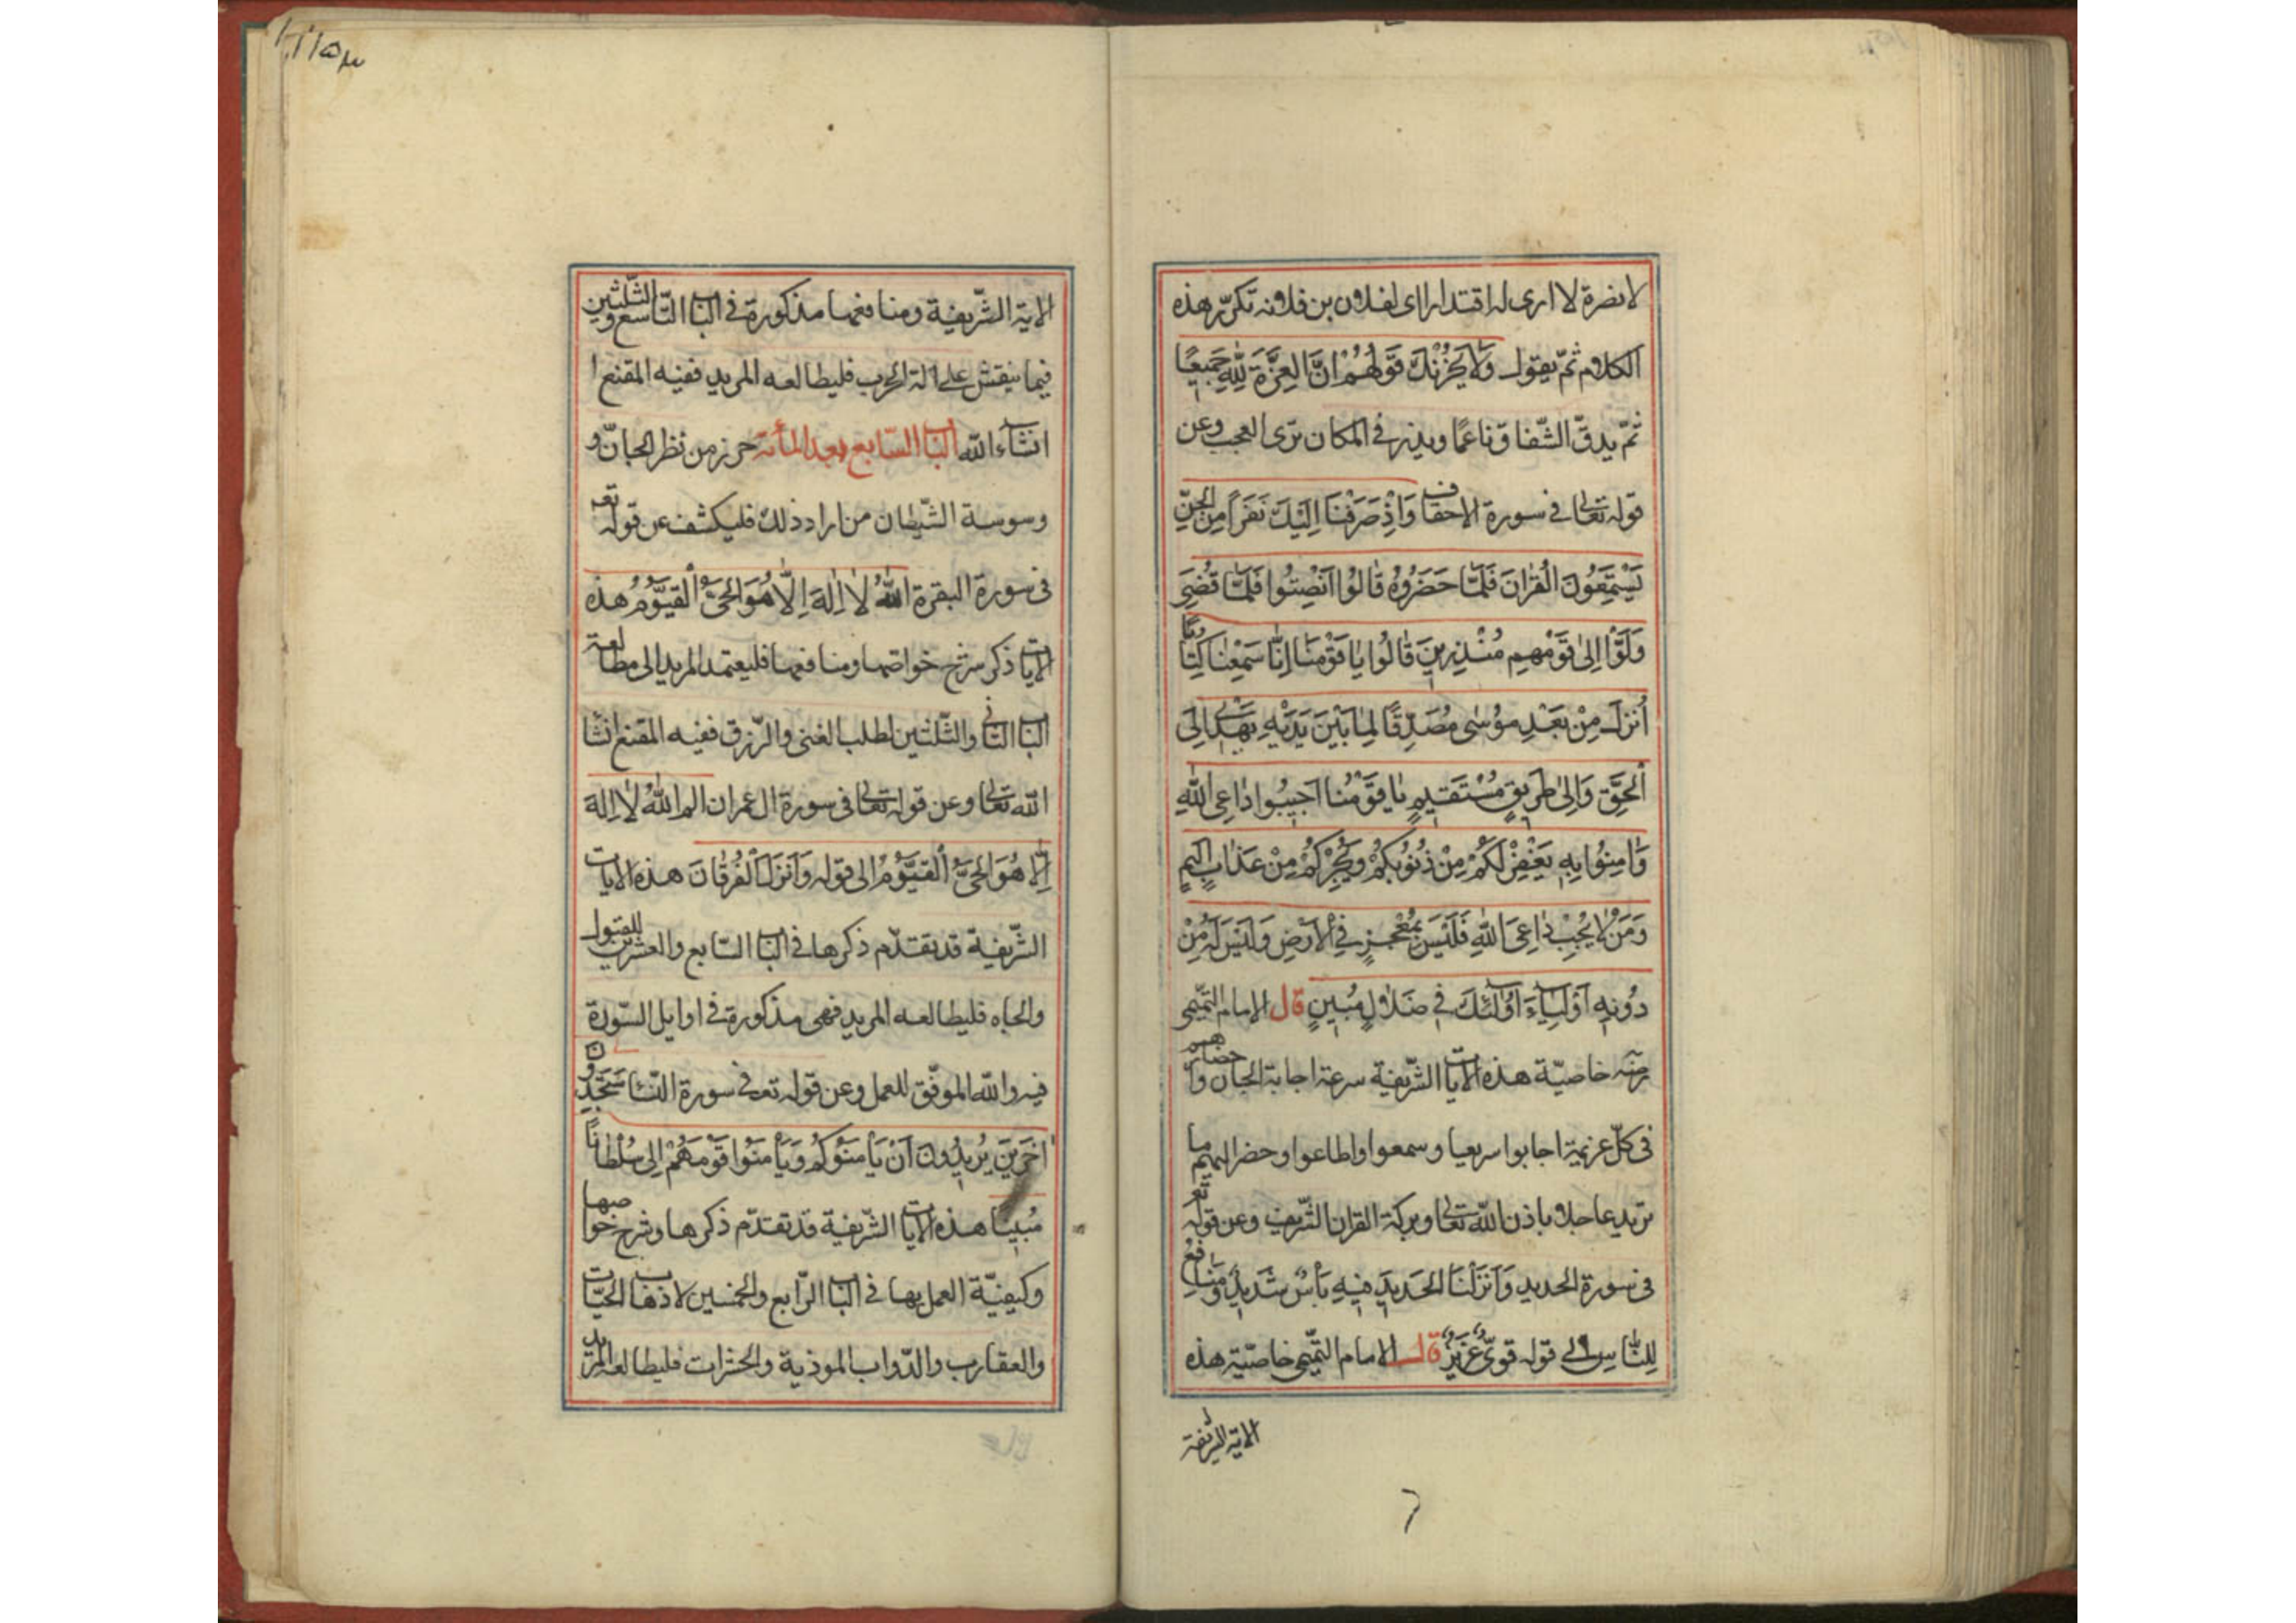 لا نضرة لا ارى له اقتدارا اى لفلان بن فلانه تكرّر هذه
الكلام ثمّ يقول وَلَا يَحْزُنْكَ قَوْلُهُمْ اِنَّ العِزَّةَ لِلّٰهِ جَمِيعًا
ثمّ يدقّ الشّفاق ناعمًا ويذر فى المكان ترى العجب وعن
قوله تعالى فى سورة الاحقاف وَاِذْ صَرَفْنَا اِلَيْكَ نَفَرًا مِنَ الْجِنِّ
يَسْتَمِعُونَ الْقُرْاٰنَ فَلَمَّا حَضَرُوهُ قَالُوا اَنْصِتُوا فَلَمَّا قُضِىَ
وَلَّوْا اِلىٰ قَوْمِهِمْ مُنْذِرِينَ قَالُوا يَا قَوْمَنَا اِنَّا سَمِعْنَا كِتَابًا
اُنْزِلَ مِنْ بَعْدِ مُوسٰى مُصَدِّقًا لِمَا بَيْنَ يَدَيْهِ يَهْدِى اِلَى
الْحَقِّ وَاِلىٰ طَرِيقٍ مُسْتَقِيمٍ يَا قَوْمَنَا اَجِيبُوا دَاعِىَ اللّٰهِ
وَاٰمِنُوا بِهِ يَغْفِرْ لَكُمْ مِنْ ذُنُوبِكُمْ وَيُجِرْكُمْ مِنْ عَذَابٍ اَلِيمٍ
وَمَنْ لَا يُجِبْ دَاعِىَ اللّٰهِ فَلَيْسَ بِمُعْجِزٍ فِى الْاَرْضِ وَلَيْسَ لَهُ مِنْ
دُونِهِ اَوْلِيَاءَ اُولٰئِكَ فِى ضَلَالٍ مُبِينٍ قال الامام التّميمى
خاصيّة هذه الايات الشّريفة سرعة اجابة الجان واحضارهم
فى كلّ عزيمة اجابوا سريعا وسمعوا واطاعوا وحضر اليهم ما
تريد عاجلا باذن اللّه تعالى وبركة القران الشّريف وعن قوله تع
فى سورة الحديد وَاَنْزَلْنَا الْحَدِيدَ فِيهِ بَأْسٌ شَدِيدٌ وَمَنَافِعُ
لِلنَّاسِ الى قوله قَوِىٌّ عَزِيزٌ قال الامام التّميمى خاصّية هذه
الاية الشريفة
الاية الشّريفة ومنافعها مذكورة فى الباب التّاسع والثّلثين
فيما ينقش على الة الحرب فليطالعه المريد ففيه المقنع ا
انشاء اللّه الباب السّابع بعد المأته حرز من نظر الجانّ و
وسوسة الشّيطان من اراد ذلك فليكشف عن قوله تعه
فى سورة البقرة اَللّٰهُ لَا اِلٰهَ اِلَّا هُوَ الْحَىُّ الْقَيُّومُ هذه
الايات ذكر شرح خواصها ومنافعها فليعتمد المريد الى مطالعة
الباب الثّانى والثّلثين لطلب الغنى والرّزق ففيه المقنع انشا
اللّه تعالى وعن قوله تعالى فى سورة ال عمران الم اللّٰهُ لَا اِلٰهَ
اِلَّا هُوَ الْحَىُّ الْقَيُّومُ الى قوله وَاَنْزَلَ الْفُرْقَانَ هذه الايات
الشّريفة قد تقدّم ذكرها فى الباب السّابع والعشرين للقبول
والجاه فليطالعه المريد فهى مذكورة فى اوايل السّورة
فيه واللّه الموفّق للعمل وعن قوله تع فى سورة النّسا سَتَجِدُونَ
اٰخَرِينَ يُرِيدُونَ اَنْ يَأْمَنُوكُمْ وَيَأْمَنُوا قَوْمَهُمْ الى سُلْطَانًا
مُبِينًا هذه الايات الشّريفة قد تقدّم ذكرها وشرح خواصها
وكيفيّة العمل بها فى الباب الرّابع والخمسين لاذهاب الحيّات
والعقارب والدّواب الموذية والحشرات فليطالعه المريد